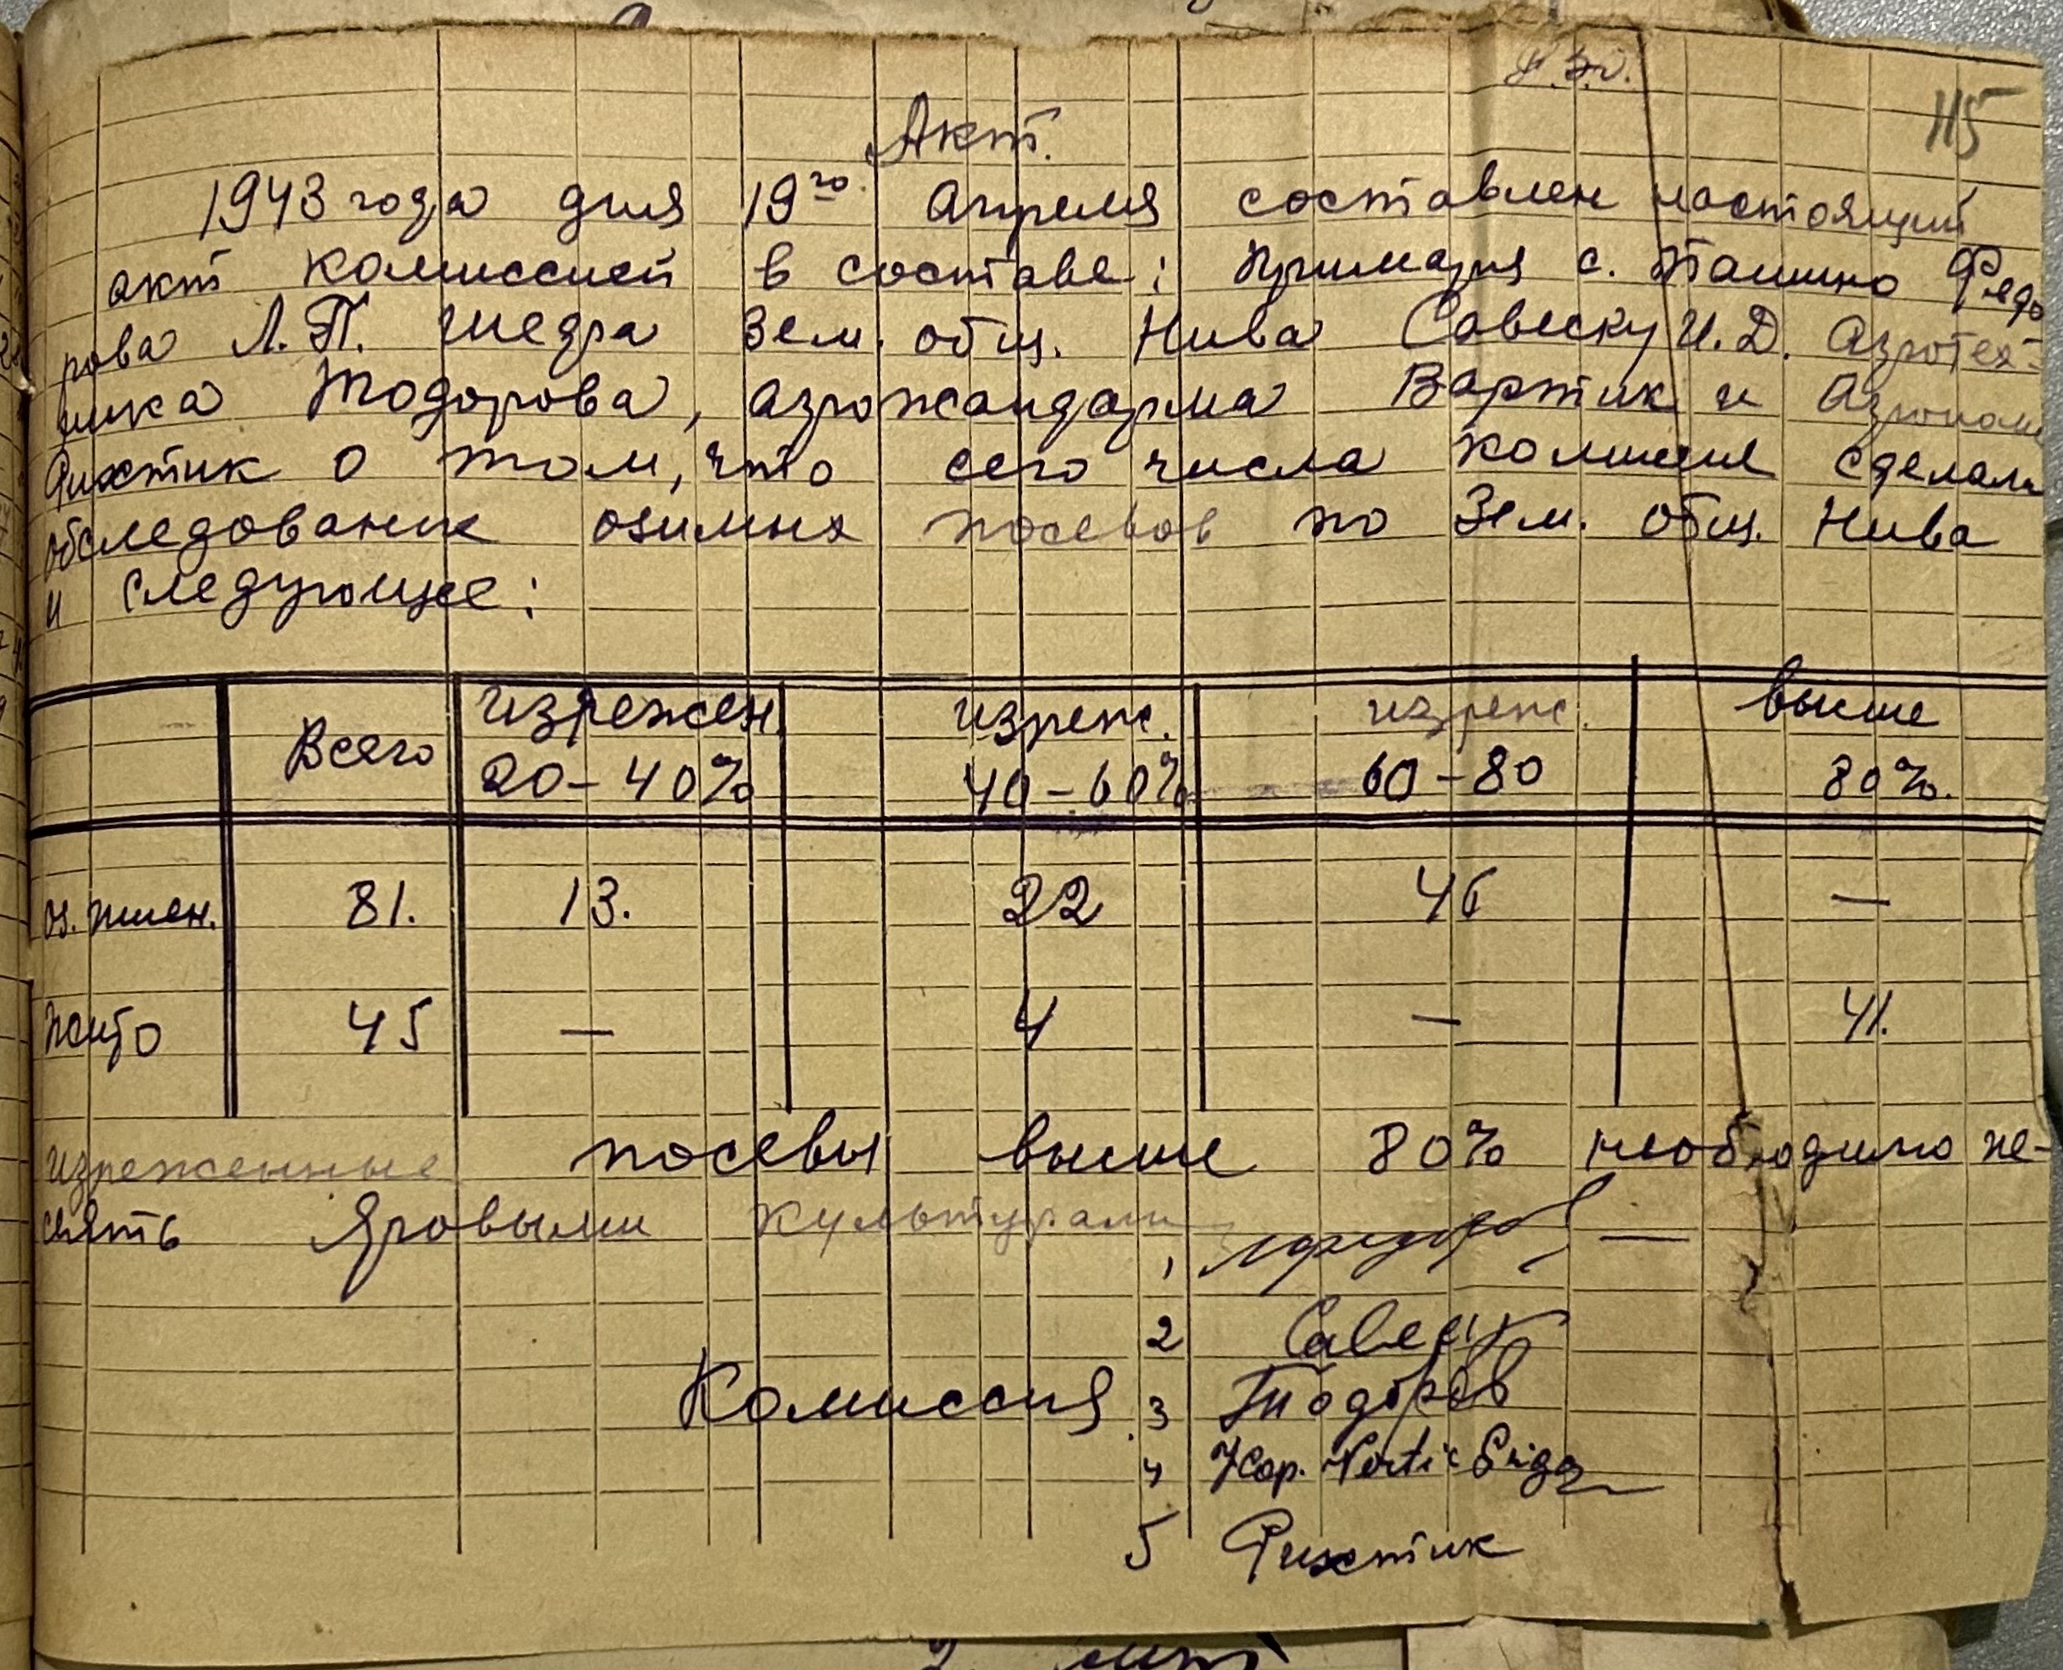 115
Акт.
1943 года дня 19го Апреля составлен настоящий
акт комиссией в составе: Примаря с. Ташино Федо
рова Л.П. шефа Зем. общ. Нива Савеску И.Д. Агротех-
ника Тодорова, агрожандарма Вартик и Агроном
Фихтик о том, что сего числа комисие сделали
обследование озимых посевов по Зем. общ. Нива
и следующее:
Всего изрежен. изреж. изреж. выше
20-40% 40-60% 60-80 80%.
оз. пшен. 81. 13. 22 46 —
жито 45 — 4 — 41.
изреженные посевы выше 80% необходимо пе-
сеять Яровыми культурами
1
2 Савеску
Комиссия 3 Тодоров
4 Жар.
5 Фихтик